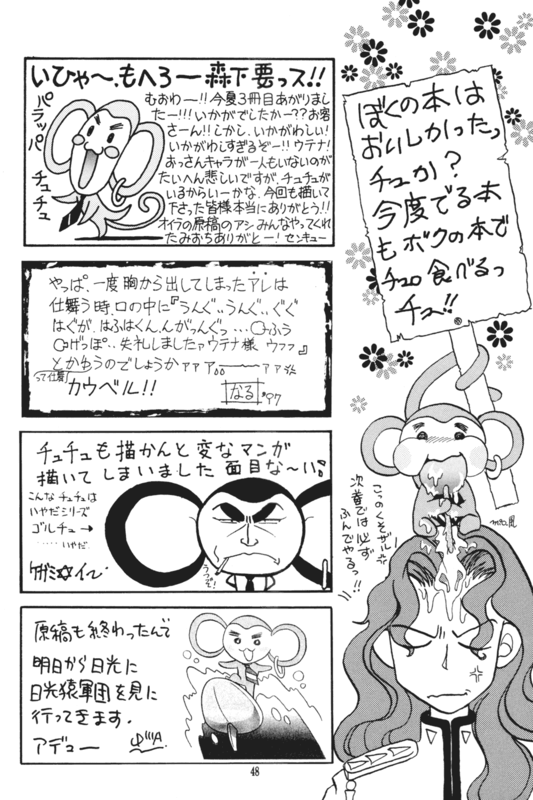 いひゃ〜、もへろー森下要っス!!
むおわー!!今夏3冊目あがりまし
たー!!!いかがでしたかー??お客
さーん!!しかし、いかがわしい!
いかがわしすぎるぞー!!ウテナ!
おっさんキャラが一人もいないのが
たいへん悲しいですが、チュチュが
いるからいーかな、今回も描いて
下さった皆様本当にありがとう!!
オイラの原稿のアシみんなやってくれ
たみおちありがとー!センキュー
パラッパ
チュチュ
やっぱ、一度胸から出してしまったアレは
仕舞う時、口の中に『うんぐぅうんぐぅ、ぐぐ
とかゆうのでしょうか
って仕舞
カウベル!!
なる
'97
チュチュも描かんと変なマンガ
描いてしまいました面目な〜い。
こんなチュチュは
いやだシリーズ
ゴルチュ→
……いやだ。
うっつぞ!
原稿も終わったんで
明日から日光に
日光猿軍団を見に
行ってきます。
アデュー
ぼくの本は
おいしかったっ
チュか?
今度でる本
もボクの本で
チュ食べるっ
チュ!!
こっのくそザル
次書では必ず
ふんでやるっ!!
48